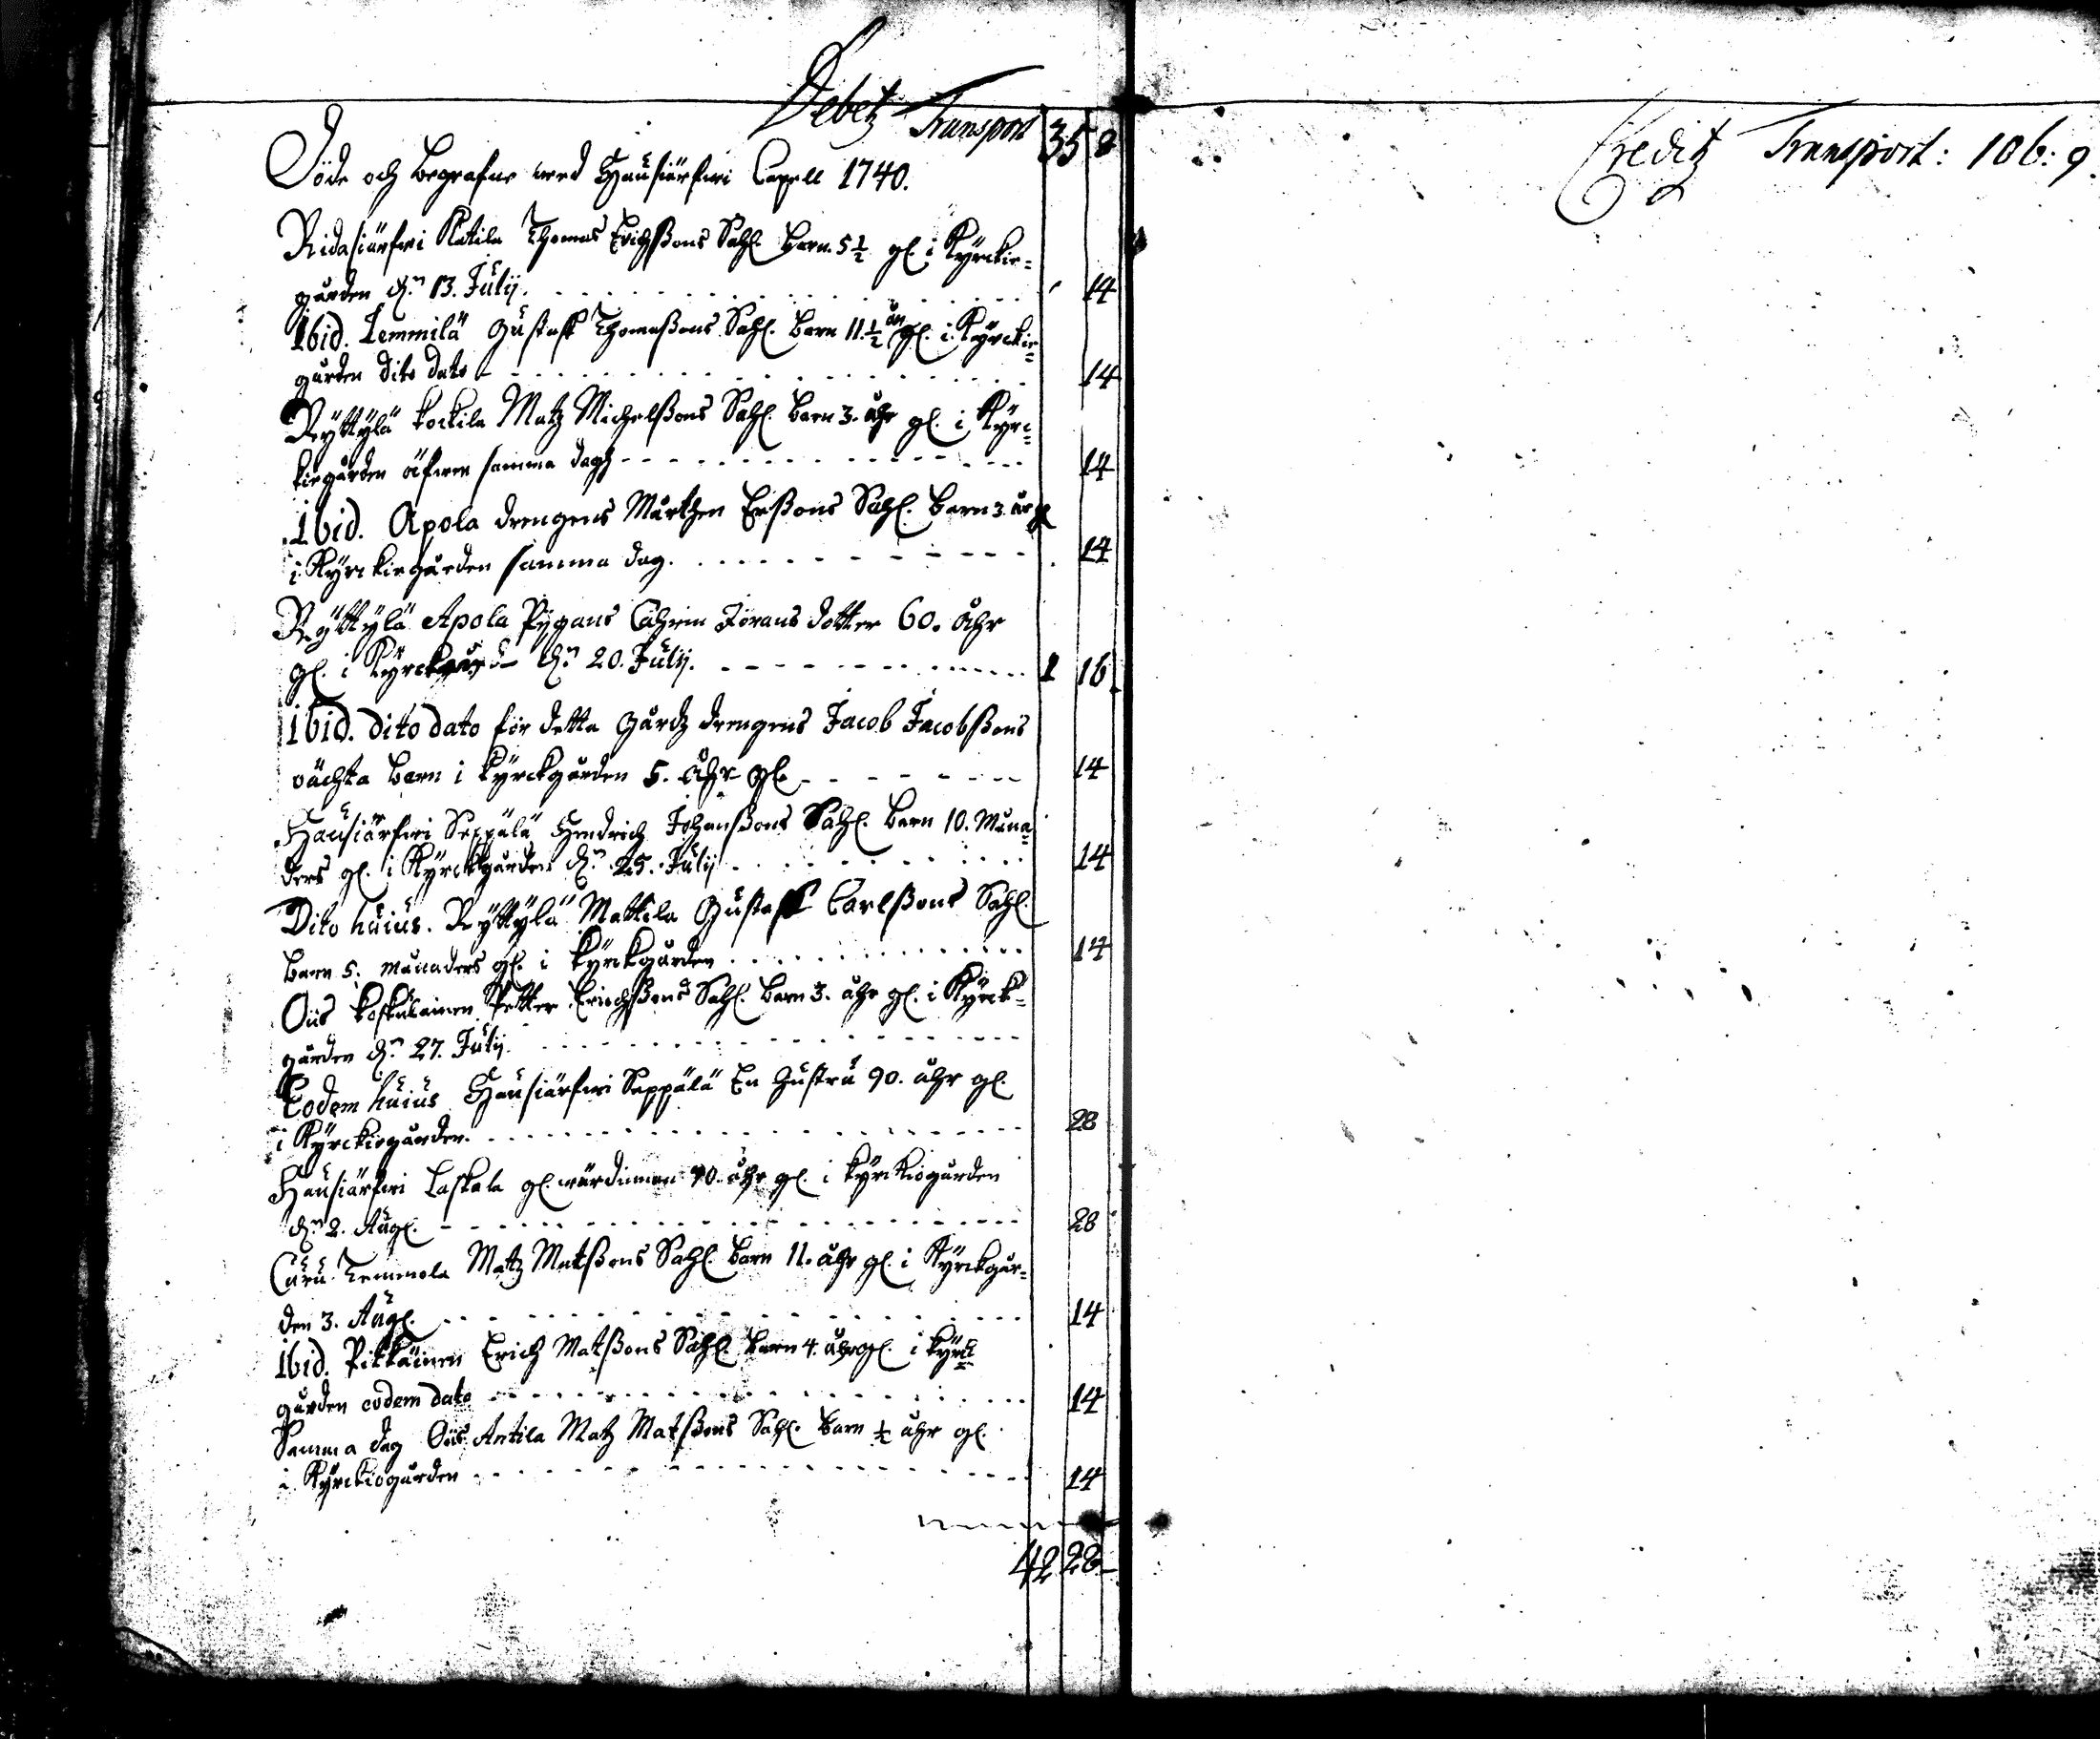 Debet Transport 35 8
Döde och begrafne wed Hausiärfwi Capell 1740.
Ridasiärfwi Katila Thomas Erichssons Sahl. barn 5 1/2 gl. i Kyrckie=
gården d. 13. Julij. 14
Ibid. Lemmilä Gustaff Thomassons Sahl. barn 11 1/2 åhr gl. i Kyrckie=
gården dito dato 14
Ryttylä Kockila Matz Michelssons Sahl. barn 3. åhr gl. i Kyrc=
kiegården äfwen samma dagh 14
Ibid. Apola drengens Mårthen Erssons Sahl. barn 3 åhr gl
i Kyrckiegården samma dag. 14
Ryttylä Apola Pygans Cahrin Jörans dotter 60. åhr
gl. i Kyrckgård d. 20. Julij. 1 16
ibid. dito dato för detta gårdz drengens Jacob Jacobssons
oächta barn i kyrckgården 5. åhr gl. 14
Hausiärfwi Seppälä Hendrich Johanssons Sahl. barn 10. Måna=
ders gl. i Kyrckgården d. 25. Julij 14
Dito huius. Ryttylä Mattila Gustaff Carlssons Sahl.
barn 5. månaders gl. i kyrckgården 14
Ois Koskulainen Petter Erichssons Sahl. barn 3. åhr gl. i Kyrck=
gården d. 27. Julij.
Eodem huius Hausiärfwi Seppälä En Hustru 90. åhr gl.
i Kyrckiegården. 28
Hausiärfwi Laskala gl. wärdinnan 70. åhr gl. i kyrckiogården
d. 2. Aug. 28
Curu Temmola Matz Matssons Sahl. barn 11. åhr gl. i Kyrckgår=
den 3. Aug. 14
Ibid. Pikkäinen Erich Matssons Sahl. barn 4. åhr gl. i kyrck=
gården eodem dato 14
Samma dag Ois Antila Matz Matssons Sahl. barn 1/2 åhr gl.
i Kyrckiogården 14
42 28
Credit Transport: 106: 9.